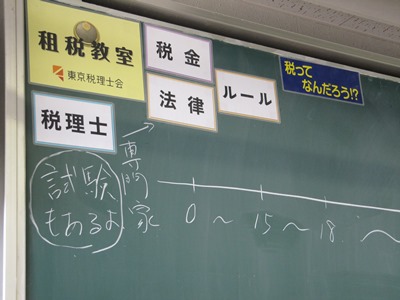 租税教室
東京税理士会
税金
法律
ルール
税って
なんだろう!?
税理士
専門家
試験
もあるよ
0 〜 15 〜 18 〜